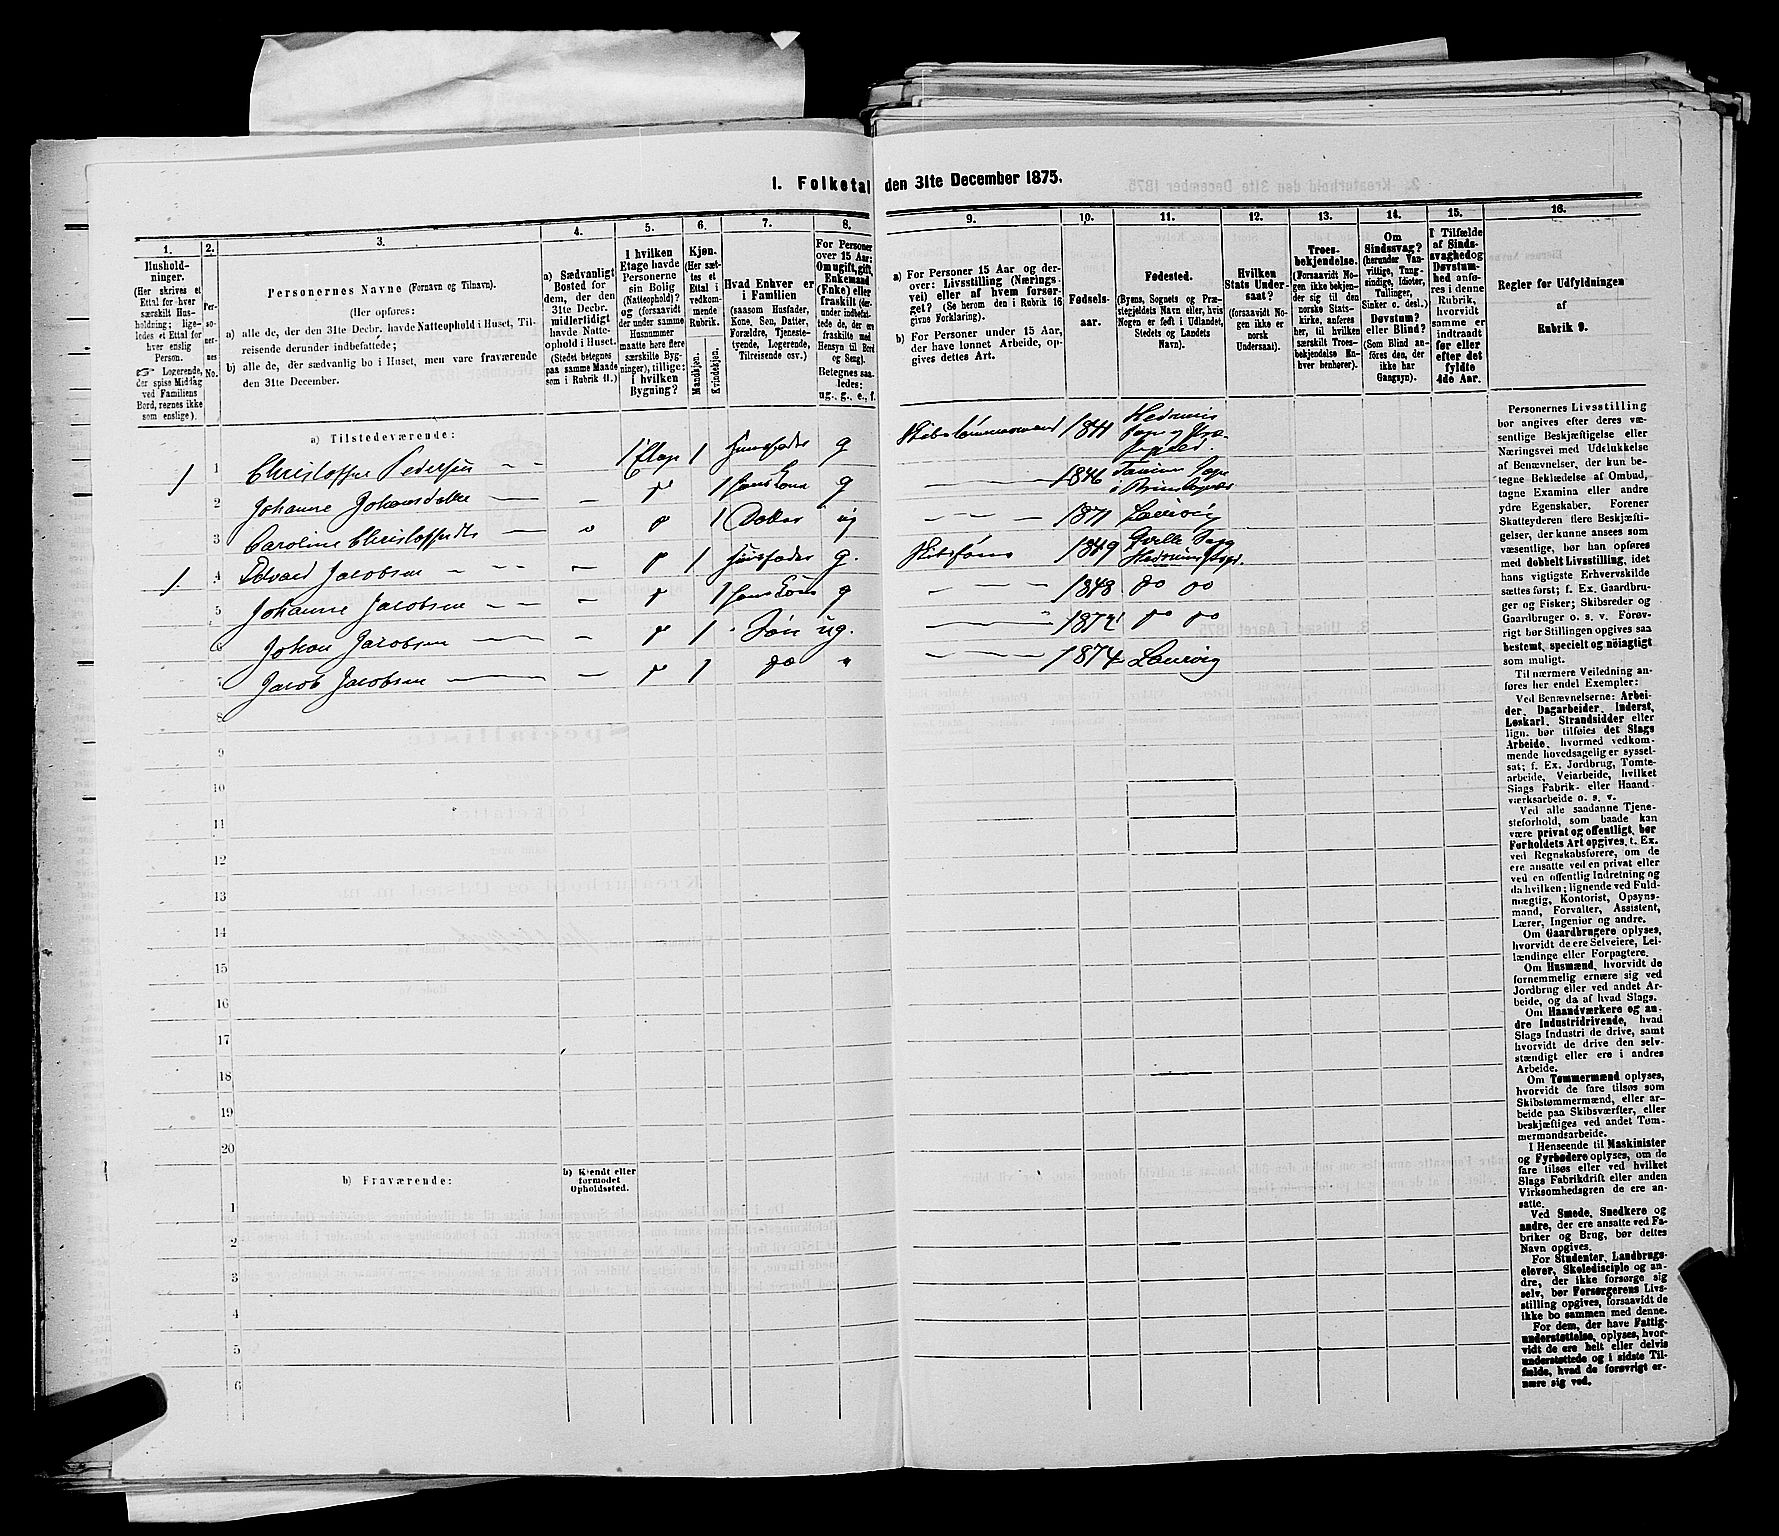 I. Folketal den 31te December 1875.
1. 2. 3. 4. 5. 6. 7. 8. 9. 10. 11. 12. 13. 14. 15. 16.
Hushold-
ninger.
(Her skrives et
Ettal for hver
særskilt Hus-
holdning; lige-
ledes et Ettal for
hver enslig
Person.
Logerende,
der spise Middag
ved Familiens
Bord, regnes ikke
som enslige).
Per-
so-
ner-
nes
No.
Personernes Navne (Fornavn og Tilnavn).
(Her opføres:
a) alle de, der den 31te Decbr. havde Natteophold i Huset, Til-
reisende derunder indbefattede;
b) alle de, der sædvanlig bo i Huset, men vare fraværende
den 31te December.
a) Sædvanligt
Bosted for
dem, der den
31te Decbr.
midlertidigt
havde Natte-
ophold i Huset.
(Stedet betegnes
paa samme Maade
som i Rubrik 11.)
I hvilken
Etage havde
Personerne
sin Bolig
(Natteophold)?
og (forsaavidt
der under samme
Husnummer
maatte høre flere
særskilte Byg-
ninger), tillige:
i hvilken
Bygning?
Kjøn.
(Her sæt-
tes et
Ettal i
vedkom-
mende
Rubrik.
Mandskjøn.
Kvindekjøn.
Hvad Enhver er
i Familien
(saasom Husfader,
Kone, Søn, Datter,
Forældre, Tjeneste-
tyende, Logerende,
Tilreisende osv.)
For Personer
over 15 Aar:
Om ugift, gift,
Enkemand
(Enke) eller
fraskilt (der-
under indbefat-
tede de, der ere
fraskilte med
Hensyn til Bord
og Seng).
Betegnes saa-
ledes:
ug., g., e., f.
a) For Personer 15 Aar og der-
over: Livsstilling (Nærings-
vei) eller af hvem forsør-
get? (Se herom den i Rubrik 16
givne Forklaring).
b) For Personer under 15 Aar,
der have lønnet Arbeide, op-
gives dettes Art.
Fødsels-
aar.
Fødested.
(Byens, Sognets og Præ-
stegjeldets Navn eller, hvis
Nogen er født i Udlandet,
Stedets og Landets
Navn).
Hvilken
Stats Under-
saat?
(forsaavidt No-
gen ikke er
norsk
Undersaat).
Troes-
bekjendelse.
(Forsaavidt No-
gen ikke bekjen-
der sig til den
norske Stats-
kirke, anføres
her, til hvilken
særskilt Troes-
bekjendelse En-
hver henhører).
Om
Sindssvag?
(herunder Van-
vittige, Tung-
sindige, Idioter,
Tullinger,
Sinker o. desl.).
Døvstum?
eller Blind?
(Som Blind an-
føres den, der
ikke har
Gangsyn).
I Tilfælde
af Sinds-
svaghed og
Døvstum-
hed anfø-
res i denne
Rubrik,
hvorvidt
samme er
indtraadt
før eller
efter det
fyldte
4de Aar.
Regler for Udfyldningen
af
Rubrik 9.
a) Tilstedeværende:
1 1 Christoffer Pedersen 1 Etage 1 Husfader g Skibstømmermand 1844 Hedrums
2 Johanne Johansdatter 1 hans Kone g 1846
3 Caroline Christoffersdtr 1 Datter ug 1871 Laurvig
1 4 Edvard Jacobsen 1 Husfader g. Skibstøms 1849
5 Johanne Jacobsen 1 hans Kone g 1848 do do
6 Johan Jacobsen 1 Søn ug. 1872 do do
7 Jacob Jacobsen 1 do " 1874 Laurvig
8
9
10
11
12
13
14
15
16
17
18
19
20
b) Fraværende:
b) Kjendt eller
formodet
Opholdssted.
1
2
3
4
5
6
Personernes Livsstilling
bør angives efter deres væ-
sentlige Beskjæftigelse eller
Næringsvei med Udelukkelse
af Benævnelser, der kun be-
tegne Beklædelse af Ombud,
tagne Examina eller andre
ydre Egenskaber. Forener
Skatteyderen flere Beskjæfti-
gelser, der kunne ansees som
væsentlige, bør han opføres
med dobbelt Livsstilling, idet
hans vigtigste Erhvervskilde
sættes først; f. Ex. Gaardbru-
ger og Fisker; Skibsreder og
Gaardbruger o. s. v. Forøv-
rigt bør Stillingen opgives saa
bestemt, specielt og nøiagtigt
som muligt.
Til nærmere Veiledning an-
føres her endel Exempler:
Ved Benævnelserne: Arbei-
der, Dagarbeider, Inderst,
Løskarl, Strandsidder eller
lign. bør tilføies det Slags
Arbeide, hvormed vedkom-
mende hovedsagelig er syssel-
sat; f. Ex. Jordbrug, Tomte-
arbeide, Veiarbeide, hvilket
Slags Fabrik- eller Haand-
værksarbeide o. s. v.
Ved alle saadanne Tjene-
steforhold, som baade kan
være privat og offentligt, bør
Forholdets Art opgives, t. Ex.
ved Regnskabsførere, om de
ere ansatte ved en privat eller
ved en offentlig Indretning og
da hvilken; lignende ved Fuld-
mægtig, Kontorist, Opsyns-
mand, Forvalter, Assistent,
Lærer, Ingeniør og andre.
Om Gaardbrugere oplyses,
hvorvidt de ere Selveiere, Lei-
lændinge eller Forpagtere.
Om Husmænd, hvorvidt de
fornemmelig ernære sig ved
Jordbrug eller ved andet Ar-
beide, og da af hvad Slags.
Om Haandværkere og an-
dre Industridrivende, hvad
Slags Industri de drive, samt
hvorvidt de drive den selv-
stændigt eller ere i andres
Arbeide.
Om Tømmermænd oplyses,
hvorvidt de fare tilsøs som
Skibstømmermænd, eller ar-
beide paa Skibsværfter, eller
beskjæftiges ved andet Tøm-
mermandsarbeide.
I Henseende til Maskinister
og Fyrbødere oplyses, om de
fare tilsøs eller ved hvilket
Slags Fabrikdrift eller anden
Virksomhedsgren de ere an-
satte.
Ved Smede, Snedkere og
andre, der ere ansatte ved Fa-
briker og Brug, bør dettes
Navn opgives.
For Studenter, Landbrugs-
elever, Skoledisciple og an-
dre, der ikke forsørge sig
selv, bør Forsørgerens Livs-
stilling opgives, forsaavidt de
ikke bo sammen med denne.
For dem, der have Fattig-
understøttelse, oplyses, hvor-
vidt de ere helt eller delvis
understøttede og i sidste Til-
fælde, hvad de forøvrigt er-
nære sig ved.